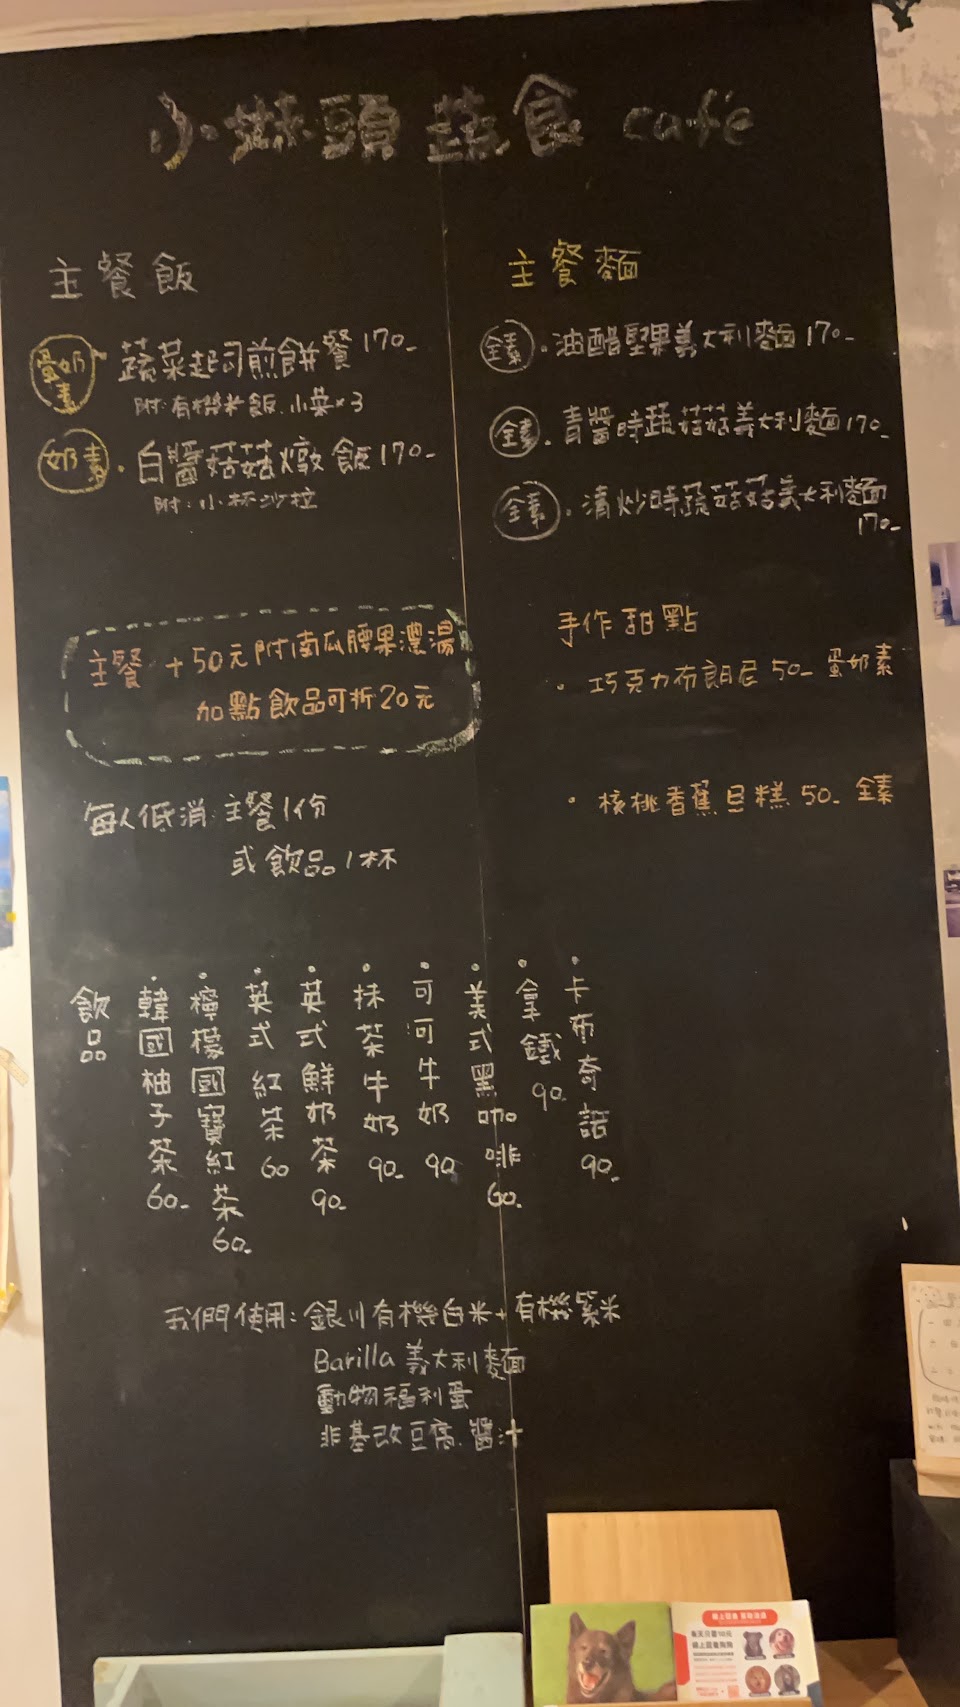 小妹頭蔬食 café
主餐飯
蛋奶素 蔬菜起司煎餅餐 170-
附:有機米飯.小菜×3
奶素 . 白醬菇菇燉飯 170-
附:小杯沙拉
主餐 +50元附南瓜腰果濃湯
加點飲品可折20元
每人低消:主餐1份
或飲品1杯
主餐麵
全素 . 油醋堅果義大利麵 170-
全素 . 青醬時蔬菇菇義大利麵 170-
全素 . 清炒時蔬菇菇義大利麵
170-
手作甜點
· 巧克力布朗尼 50- 蛋奶素
· 核桃香蕉旦糕 50- 全素
飲品
· 韓國柚子茶 60-
· 檸檬國寶紅茶 60-
· 英式紅茶 60
· 英式鮮奶茶 90-
· 抹茶牛奶 90-
· 可可牛奶 90
· 美式黑咖啡 60-
· 拿鐵 90-
· 卡布奇諾 90-
我們使用:銀川有機白米+有機紫米
Barilla 義大利麵
動物福利蛋
非基改豆腐.醬汁